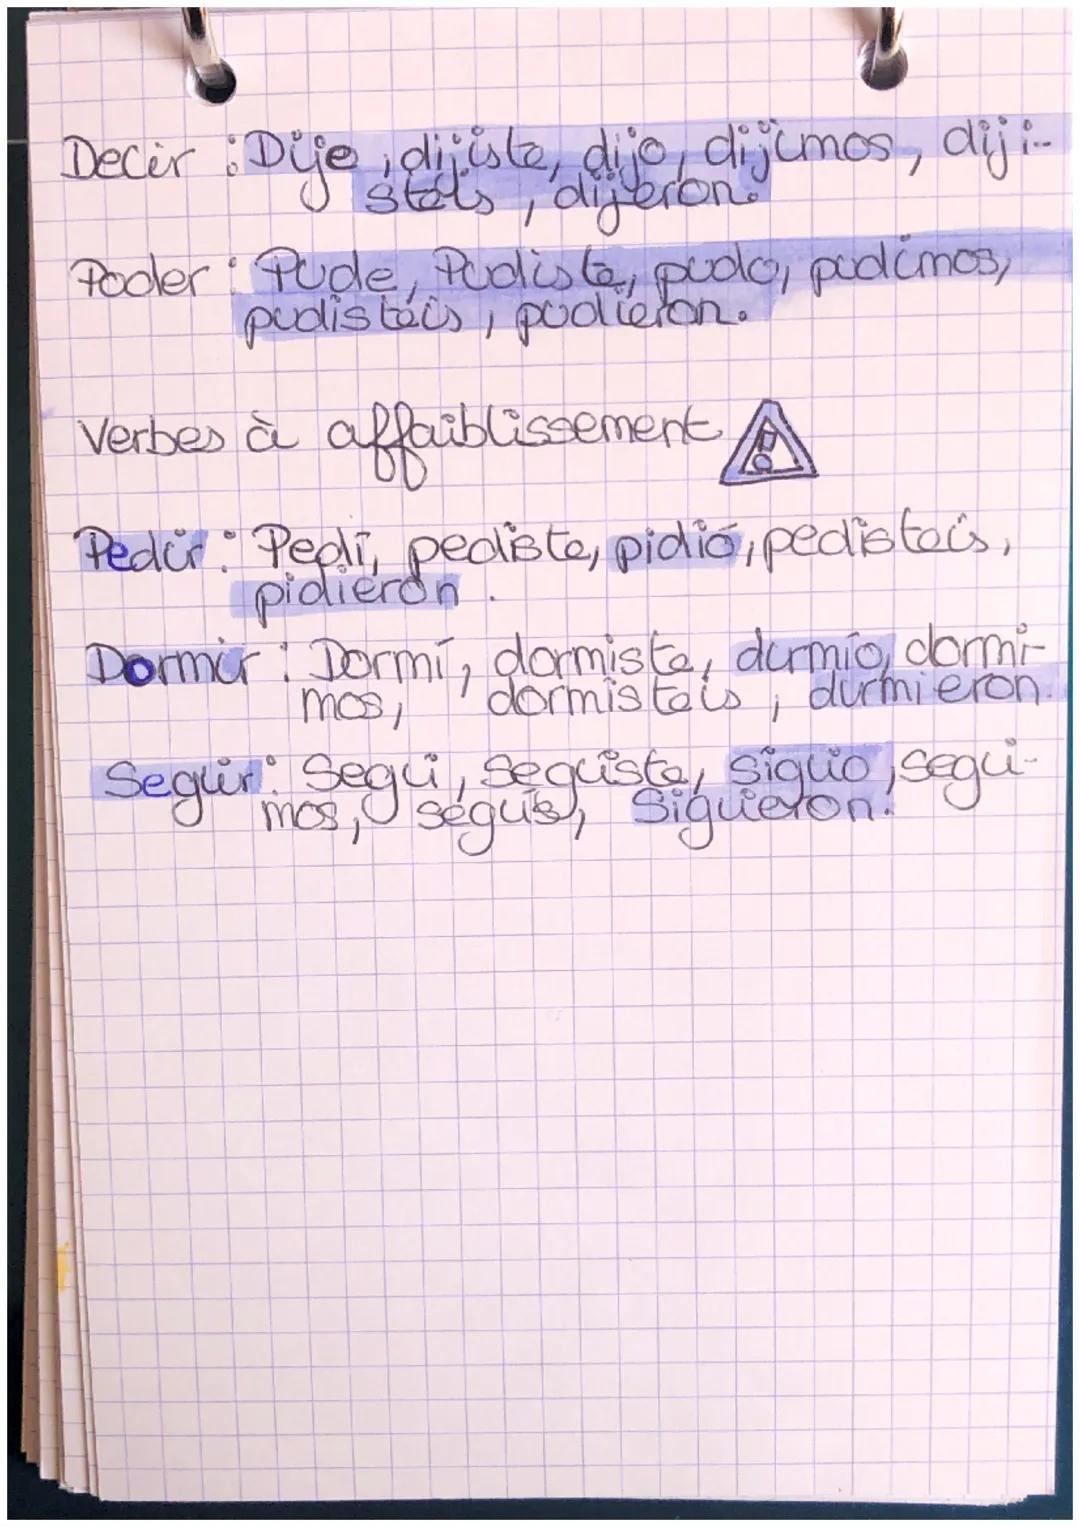 Decir : Dije, dijiste, dijo, dijimos, diji-
steis, dijeron.
Poder : Pude, Pudiste, pudo, pudimos,
pudisteis, pudieron.
Verbes à affaiblissement
Pedir : Pedí, pediste, pidió, pedisteis,
pidieron.
Dormir : Dormí, dormiste, durmío, dormi-
mos, dormisteis, durmieron.
Seguir : Segui, seguiste, siguio, segui-
mos, seguís, Siguieron.